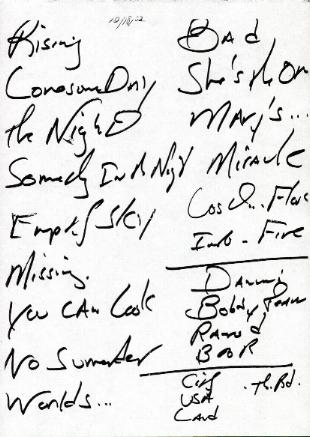 10/18/02
Rising
Lonesome Day
the Night
Someday In A Night
Empty Sky
Missing.
You CAn Look
No Surrender
Worlds...
BAd
She's the On
MARy's...
Miracle
Into - Fire
Dancing
Bobby Jean
Ramrod
BOOR
City
USA
Land